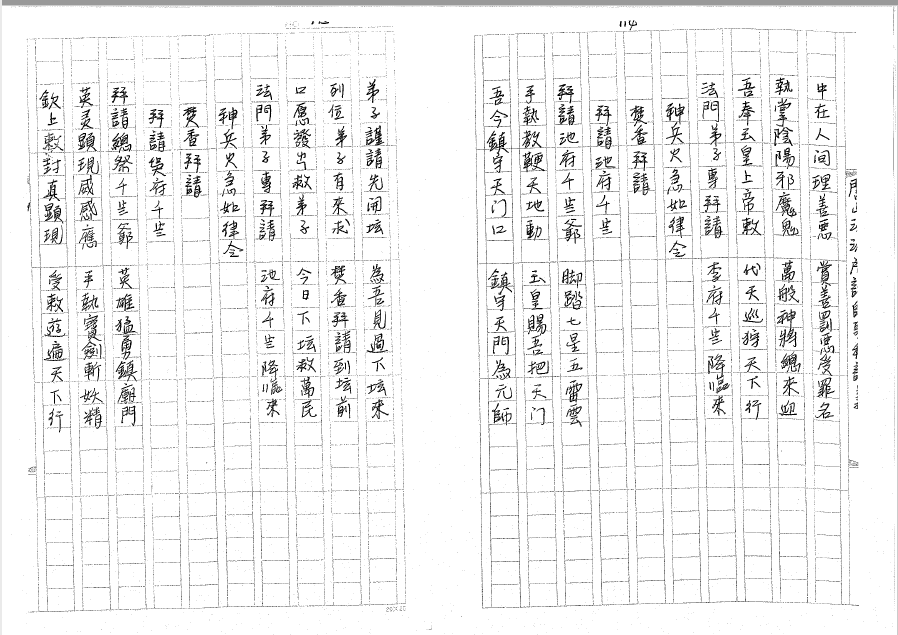 114
中在人间理善惡 賞善罰惡受罪名
執掌陰陽邪魔鬼 萬般神將總來迎
吾奉玉皇上帝敕 代天巡狩天下行
法門弟子專拜請 李府千岁降臨來
神兵火急如律令
焚香拜請
拜請池府千岁
拜請池府千岁爺 脚踏七星五雷雲
手執教鞭天地動 玉皇賜吾把天门
吾今鎮守天门口 鎮守天門為元師
弟子謹請先開坛 為吾見過下坛來
列位弟子有來求 焚香拜請到坛前
口應發出救弟子 今日下坛救萬民
法門弟子專拜請 池府千岁降臨來
神兵火急如律令
焚香拜請
拜請吳府千岁
拜請總祭千岁爺 英雄猛勇鎮廟門
英灵顯現威感應 手執寶劍斬妖精
欽上敕封真顯現 受敕遊遍天下行